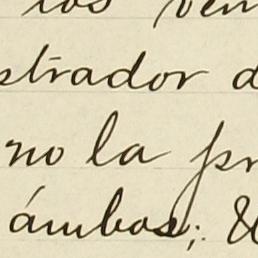 los ven
strador d
no la pr
ámbos;